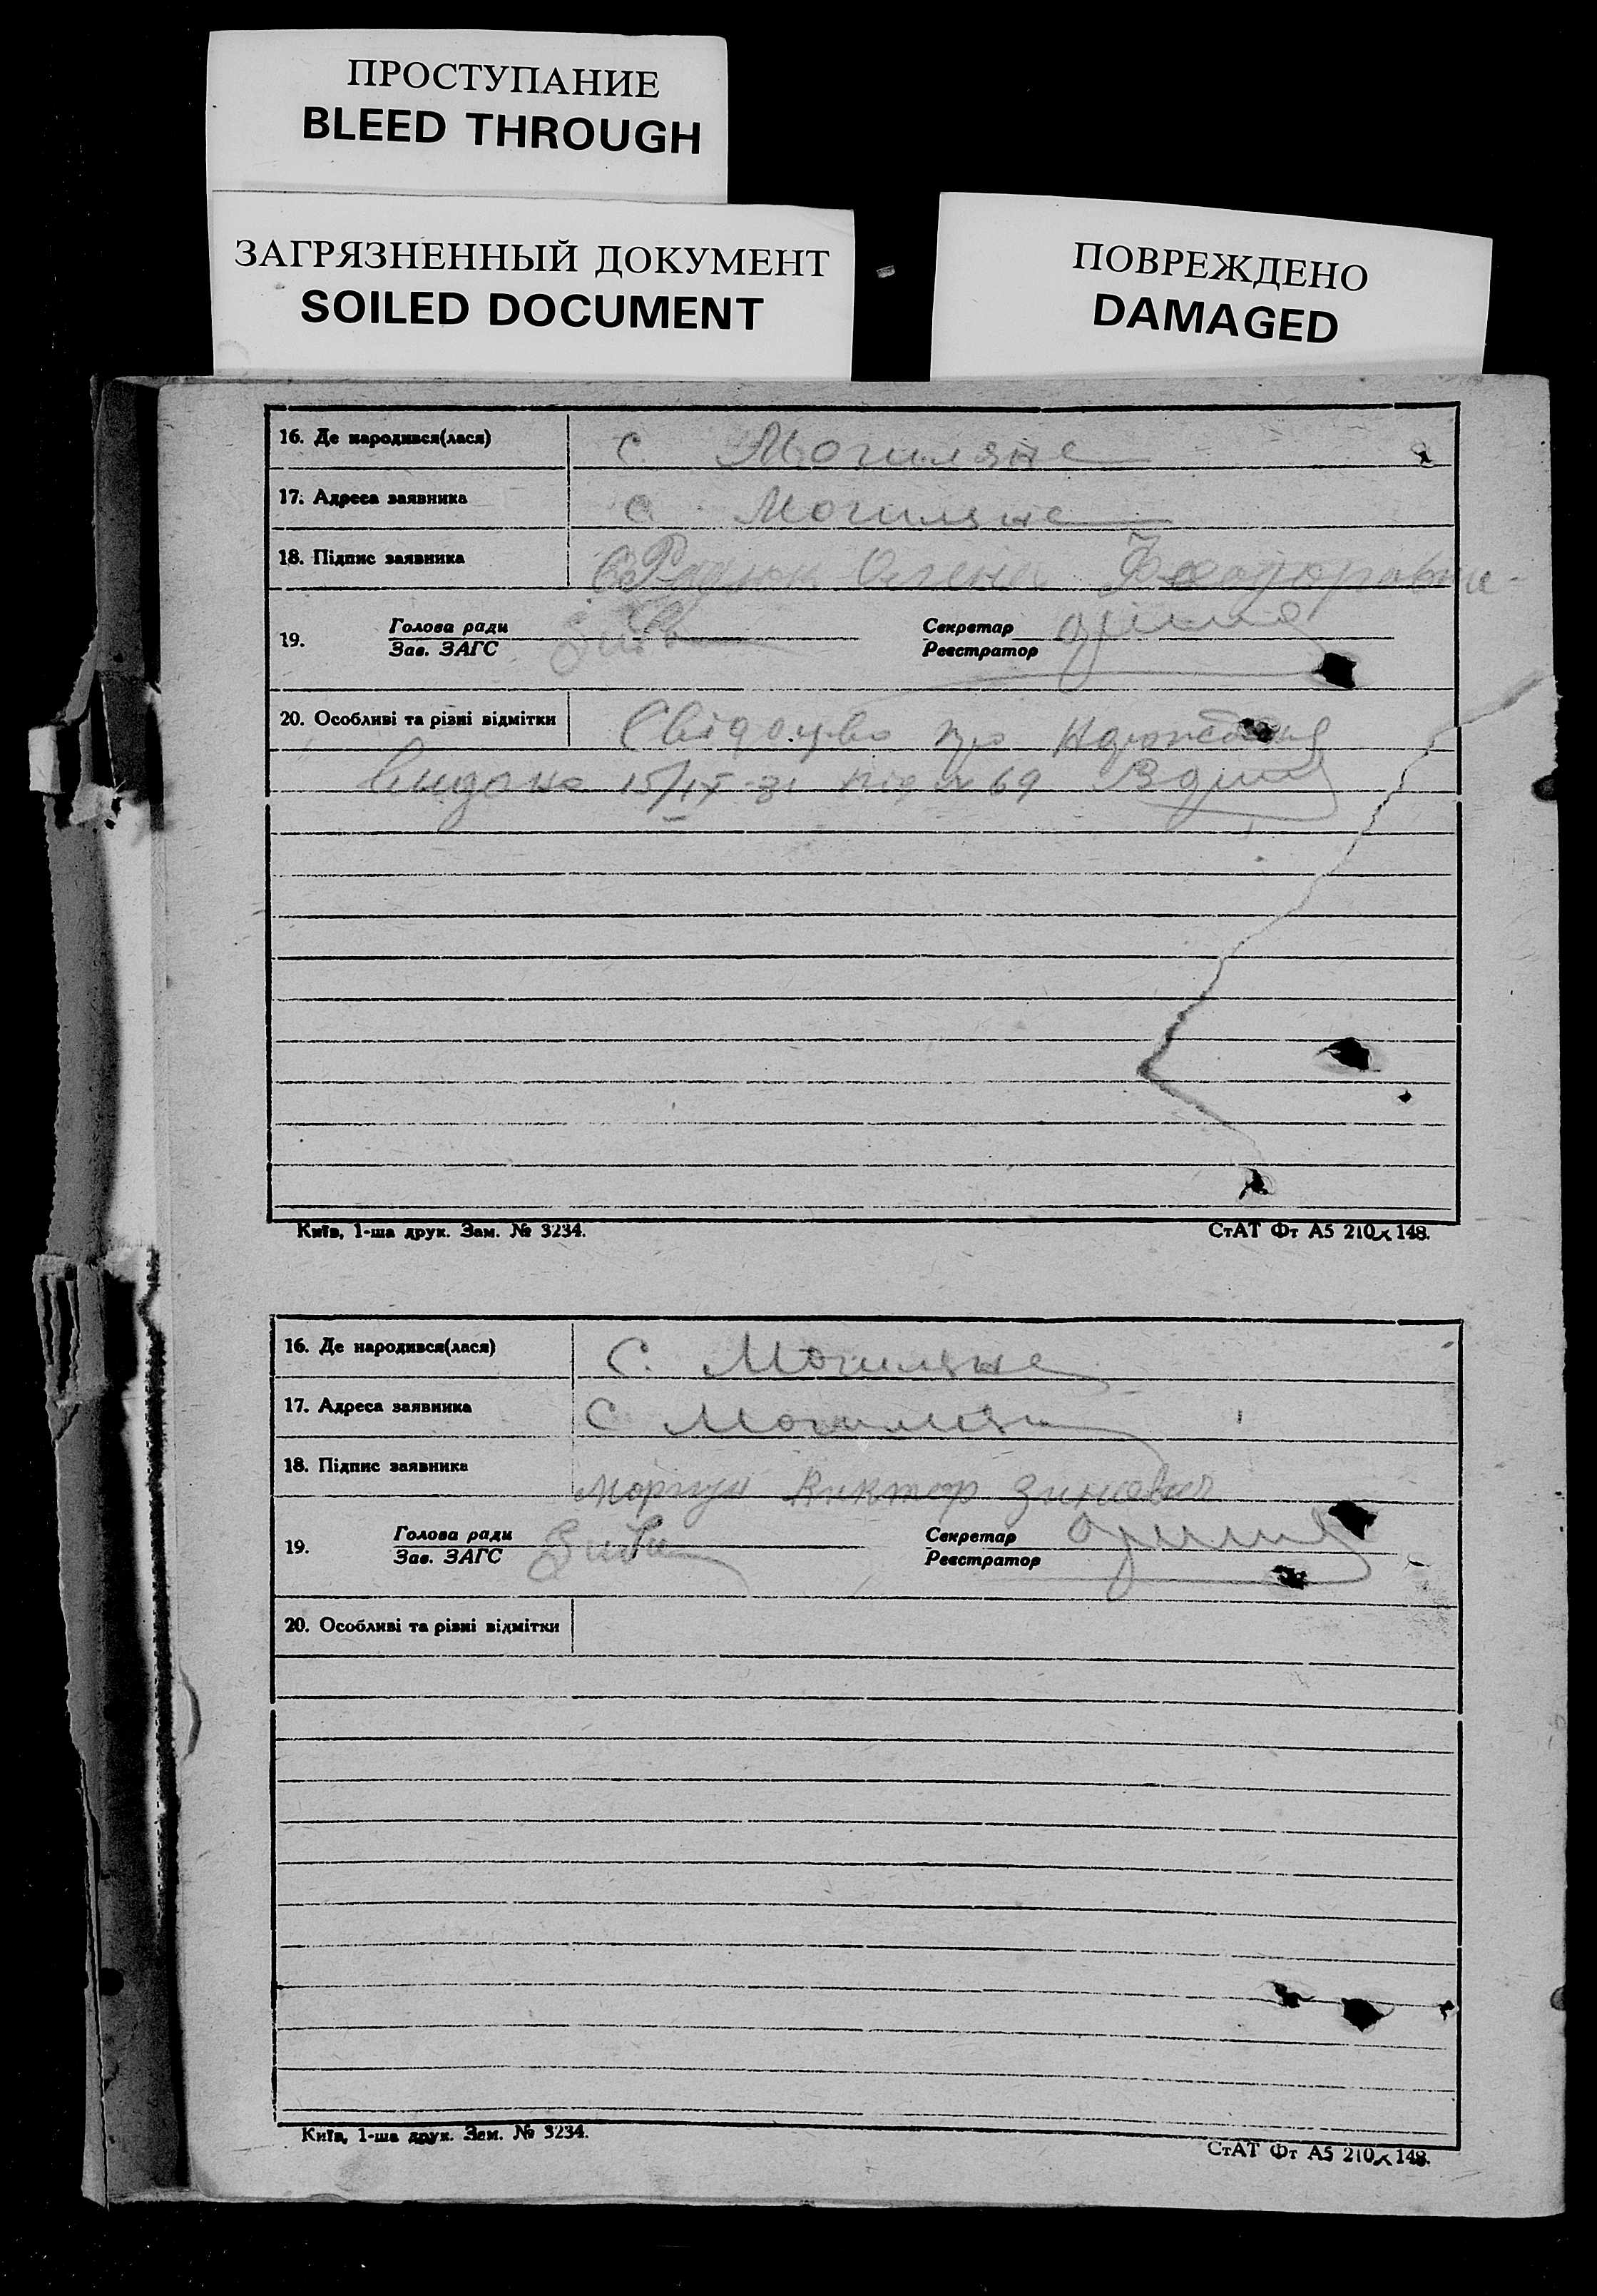 ПРОСТУПАНИЕ
BLEED THROUGH
ЗАГРЯЗНЕННЫЙ ДОКУМЕНТ
SOILED DOCUMENT
ПОВРЕЖДЕНО
DAMAGED
16. Де народився(лася) с. Могиляне
17. Адреса заявника с. Могиляне
18. Підпис заявника Олена
19. Голова ради Секретар
Зав. ЗАГС Реєстратор
20. Особливі та різні відмітки Свідоцтво про
Видано 15/IX-31 під № 69
Київ, 1-ша друк. Зам. № 3234. СтАТ Фт А5 210 х 148.
16. Де народився(лася) С. Могиляне
17. Адреса заявника С Могиляни
18. Підпис заявника Моргун Виктор
19. Голова ради Секретар
Зав. ЗАГС Реєстратор
20. Особливі та різні відмітки
Київ, 1-ша друк. Зам. № 3234.
СтАТ Фт А5 210 х 148.